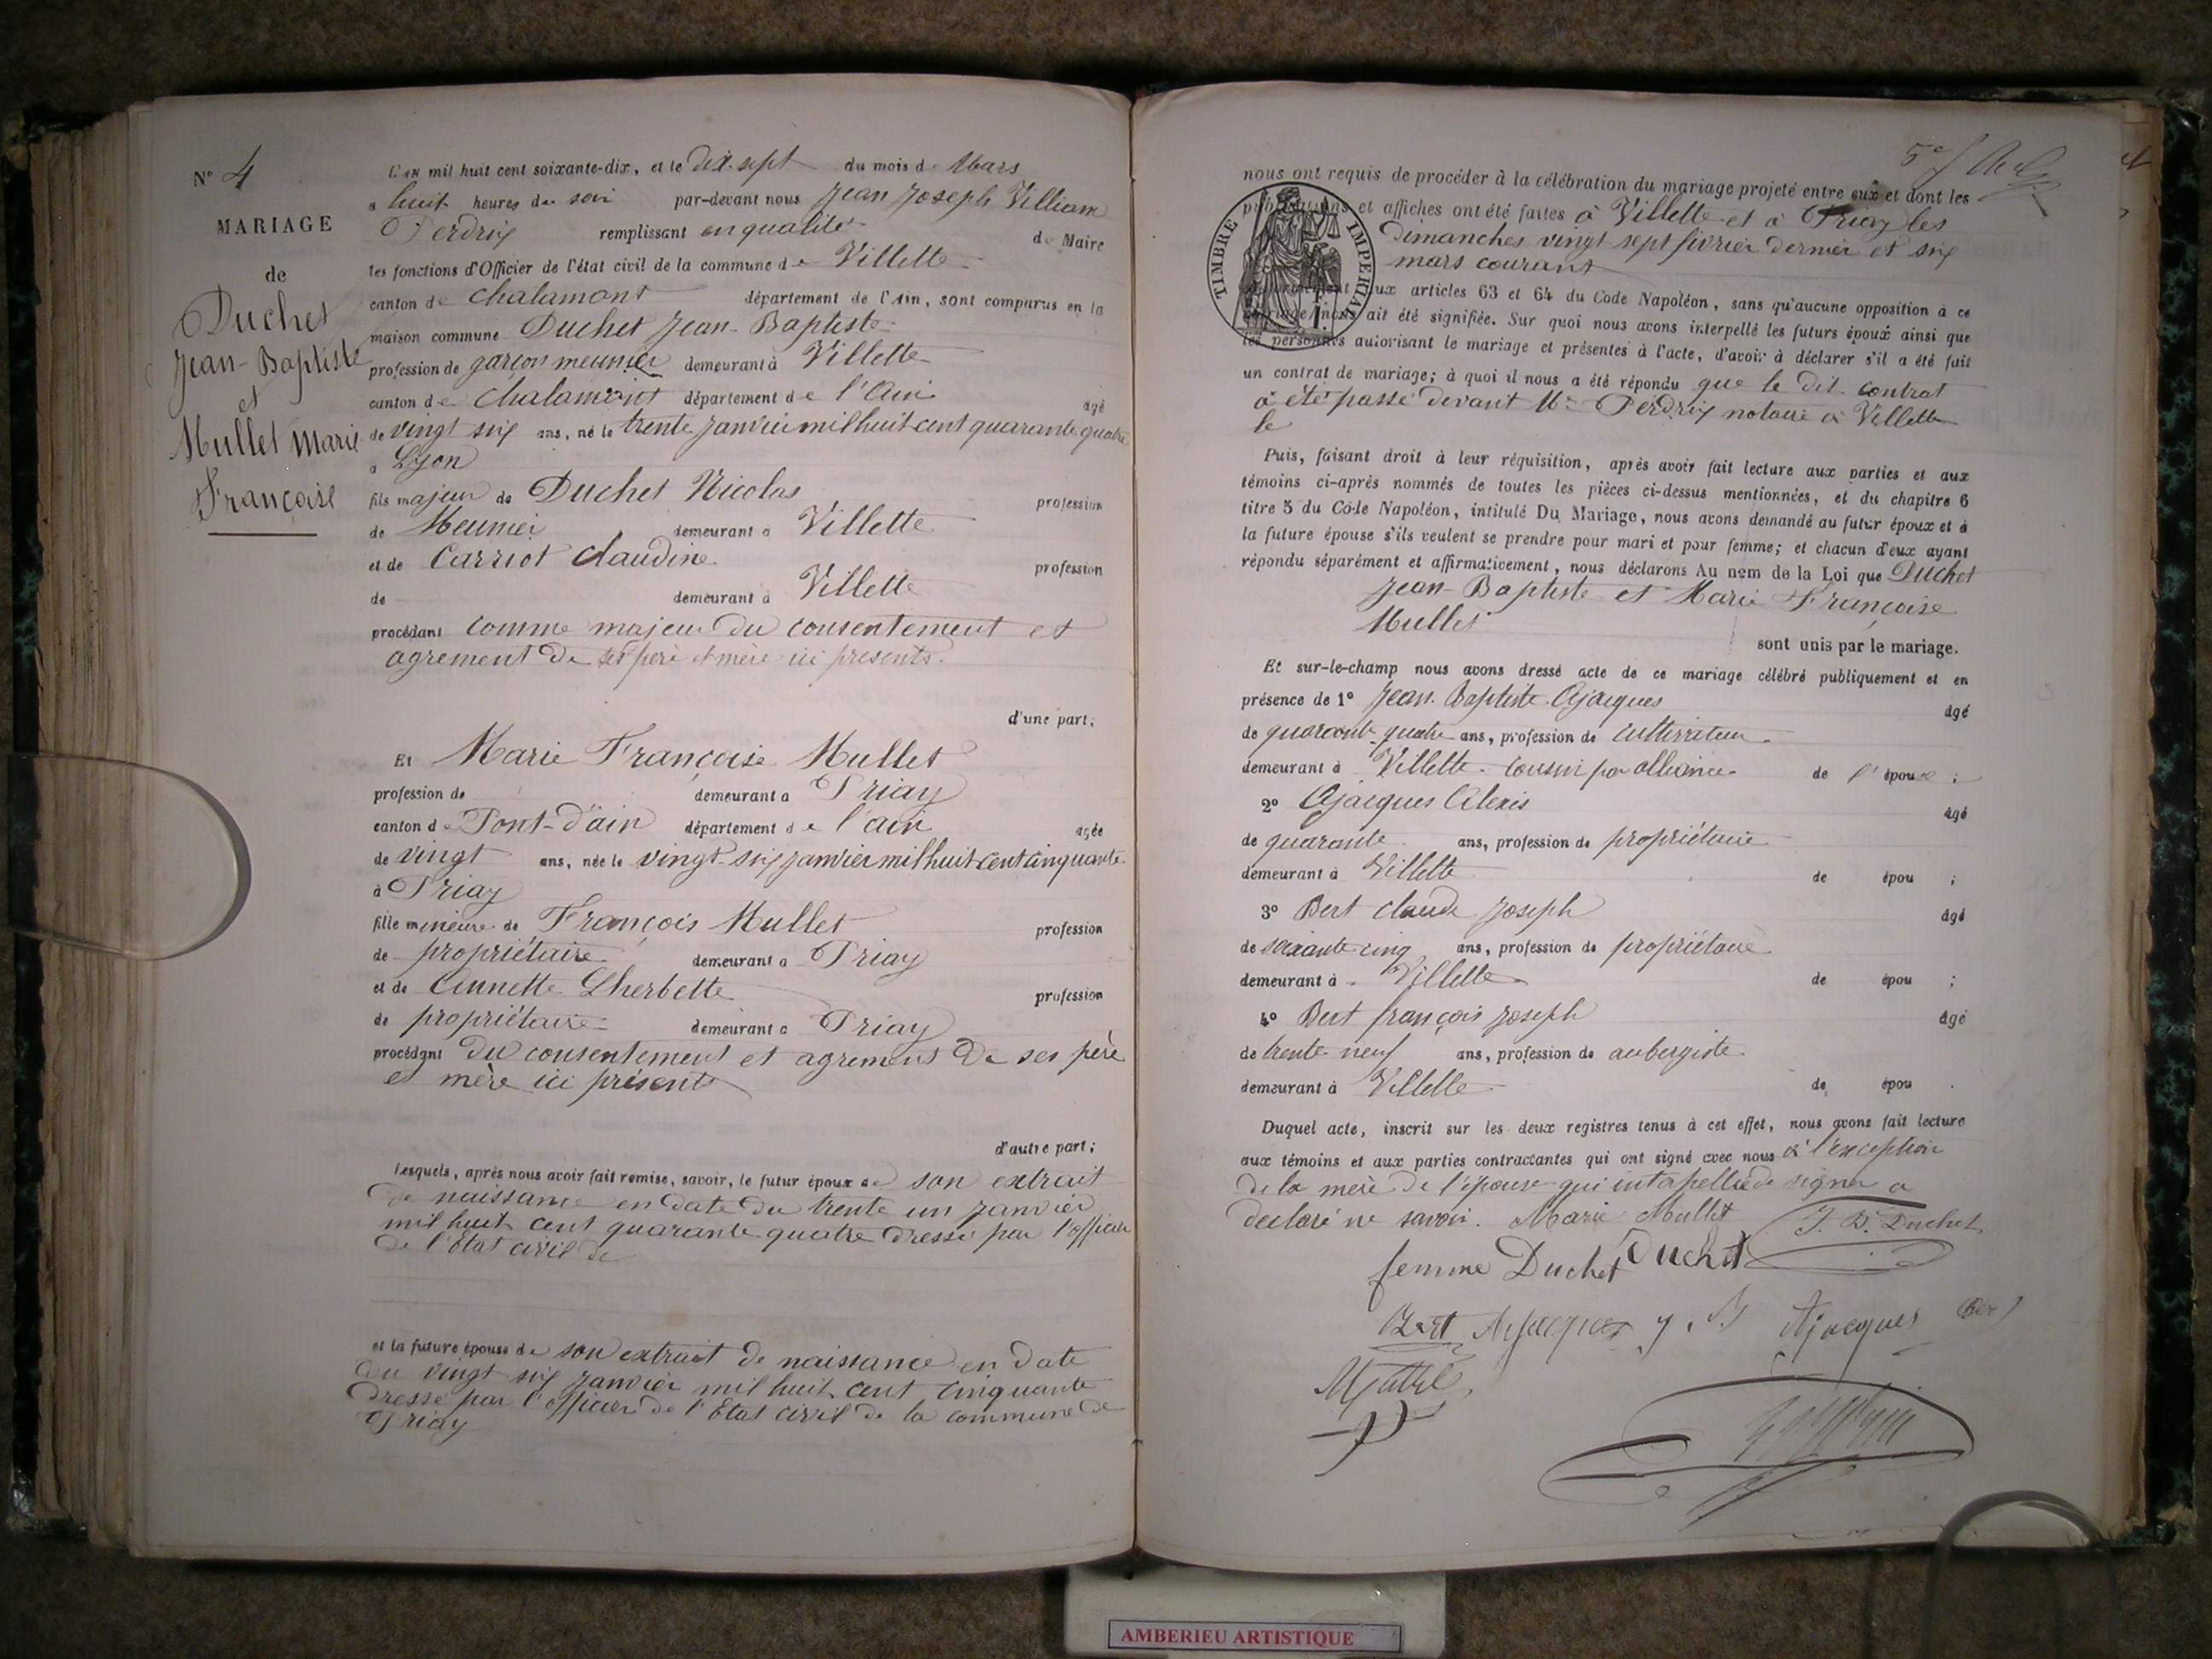 N° 4
MARIAGE
de
Duchet
Jean-Baptiste
et
Mullet Marie
Françoise
L'an mil huit cent soixante-dix, et le dix-sept du mois de Mars
à huit heures du soir par-devant nous Jean Joseph Villiam
Perdrix remplissant en qualité de Maire
les fonctions d'Officier de l'état civil de la commune de Villette
canton de Chalamont département de l'Ain, sont comparus en la
maison commune Duchet Jean-Baptiste
profession de garçon meunier demeurant à Villette
canton de Chalamont département de l'Ain âgé
de vingt six ans, né le trente janvier mil huit cent quarante quatre
à Lyon
fils majeur de Duchet Nicolas profession
de Meunier demeurant à Villette
et de Carriot Claudine profession
de demeurant à Villette
procédant comme majeur du consentement et
agrement de ses père et mère ici presents.
d'une part;
Et Marie Françoise Mullet
profession de demeurant à Priay
canton de Pont-d'ain département de l'ain agée
de vingt ans, née le vingt-six janvier mil huit cent cinquante
à Priay
fille mineure de François Mullet profession
de propriétaire demeurant à Priay
et de Annette Lherbette profession
de propriétaire demeurant à Priay
procédant du consentement et agrement de ses père
et mère ici présents
d'autre part;
Lesquels, après nous avoir fait remise, savoir, le futur époux de son extrait
de naissance en date du trente un janvier
mil huit cent quarante quatre dressé par l'officier
de l'Etat civil de
et la future épouse de son extrait de naissance en date
du vingt six janvier mil huit cent cinquante
dressé par l'officier de l'Etat civil de la commune de
Priay
nous ont requis de procéder à la célébration du mariage projeté entre eux et dont les
publications et affiches ont été faites à Villette et à Priay les
dimanches vingt sept fevrier dernier et six
mars courant
TIMBRE IMPERIAL
1 F.
conformément aux articles 63 et 64 du Code Napoléon, sans qu'aucune opposition à ce
mariage nous ait été signifiée. Sur quoi nous avons interpellé les futurs époux ainsi que
les personnes autorisant le mariage et présentes à l'acte, d'avoir à déclarer s'il a été fait
un contrat de mariage; à quoi il nous a été répondu que le dit contrat
a été passé devant Me Perdrix notaire à Villette
le
Puis, faisant droit à leur réquisition, après avoir fait lecture aux parties et aux
témoins ci-après nommés de toutes les pièces ci-dessus mentionnées, et du chapitre 6
titre 5 du Code Napoléon, intitulé Du Mariage, nous avons demandé au futur époux et à
la future épouse s'ils veulent se prendre pour mari et pour femme; et chacun d'eux ayant
répondu séparément et affirmativement, nous déclarons Au nom de la Loi que Duchet
Jean-Baptiste et Marie Françoise
Mullet
sont unis par le mariage.
Et sur-le-champ nous avons dressé acte de ce mariage célébré publiquement et en
présence de 1° Jean-Baptiste Ajacques âgé
de quarante-quatre ans, profession de cultivateur
demeurant à Villette cousin par alliance de l'époux;
2° Ajacques Alexis âgé
de quarante ans, profession de propriétaire
demeurant à Villette de épou ;
3° Bert Claude Joseph âgé
de soixante cinq ans, profession de propriétaire
demeurant à Villette de épou ;
4° Bert françois Joseph âgé
de trente neuf ans, profession de aubergiste
demeurant à Villette de épou .
Duquel acte, inscrit sur les deux registres tenus à cet effet, nous avons fait lecture
aux témoins et aux parties contractantes qui ont signé avec nous à l'exception
de la mere de l'épouse qui interpellée de signer a
declaré ne savoir. Marie Mullet J. B. Duchet
femme Duchet Duchet
Bert Ajacques J. B Ajacques Bert
AMBERIEU ARTISTIQUE